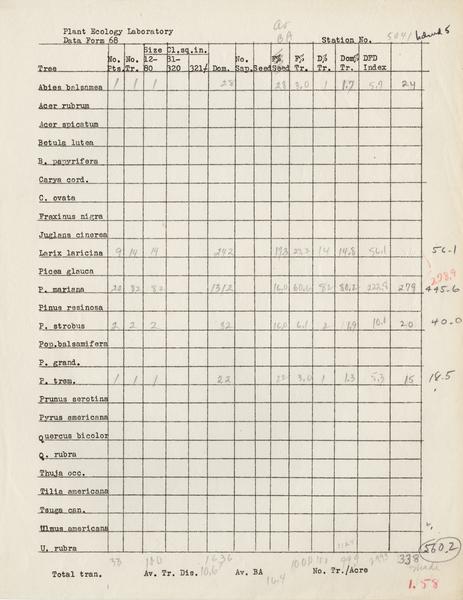 Plant Ecology Laboratory
Data Form 68 Station No. 5041
av
BA
Size Cl.sq.in.
No. No. 12- 81- No. F% F% D% Dom% DFD
Tree Pts. Tr. 80 320 321/ Dom. Sap. Seed Seed Tr. Tr. Tr. Index
Abies balsamea 1 1 1 28 28 3.0 1 1.7 5.7 24
Acer rubrum
Acer spicatum
Betula lutea
B. papyrifera
Carya cord.
C. ovata
Fraxinus nigra
Juglans cinerea
Larix laricina 9 14 14 242 17.3 27.3 14 14.8 56.1 56.1
Picea glauca
278.9
P. mariana 20 82 82 1312 16.0 60.6 82 80.2 222.8 279 445.6
Pinus resinosa
P. strobus 2 2 2 32 16.0 6.1 2 1.9 10.1 20 40.0
Pop.balsamifera
P. grand.
P. trem. 1 1 1 22 22 3.0 1 1.3 5.3 15 18.5
Prunus serotina
Pyrus americana
Quercus bicolor
Q. rubra
Thuja occ.
Tilia americana
Tsuga can.
Ulmus americana
U. rubra
33 100 1636 100.0 338 560.2
Total tran. Av. Tr. Dis. 10.6 Av. BA 16.4 No. Tr./Acre
1.58